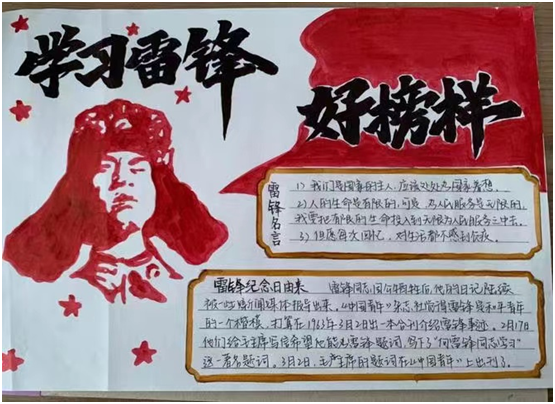 学习雷锋
好榜样
雷锋名言
1) 我们是国家的主人,应该处处为国家着想。
2) 人的生命是有限的,可是,为人民服务是无限的,
我要把有限的生命投入到无限为人民服务之中去。
3) 但愿每次回忆,对生活都不感到负疚。
雷锋纪念日由来 雷锋同志因公牺牲后,他的日记陆续
被一些新闻媒体报导出来。《中国青年》杂志社觉得雷锋是和平青年
的一个楷模,打算在1963年3月2日出一本合刊介绍雷锋事迹。2月17日
他们给毛主席写信希望他能为雷锋题词,写下了"向雷锋同志学习"
这一著名题词。3月2日,毛主席的题词在《中国青年》上出刊了。